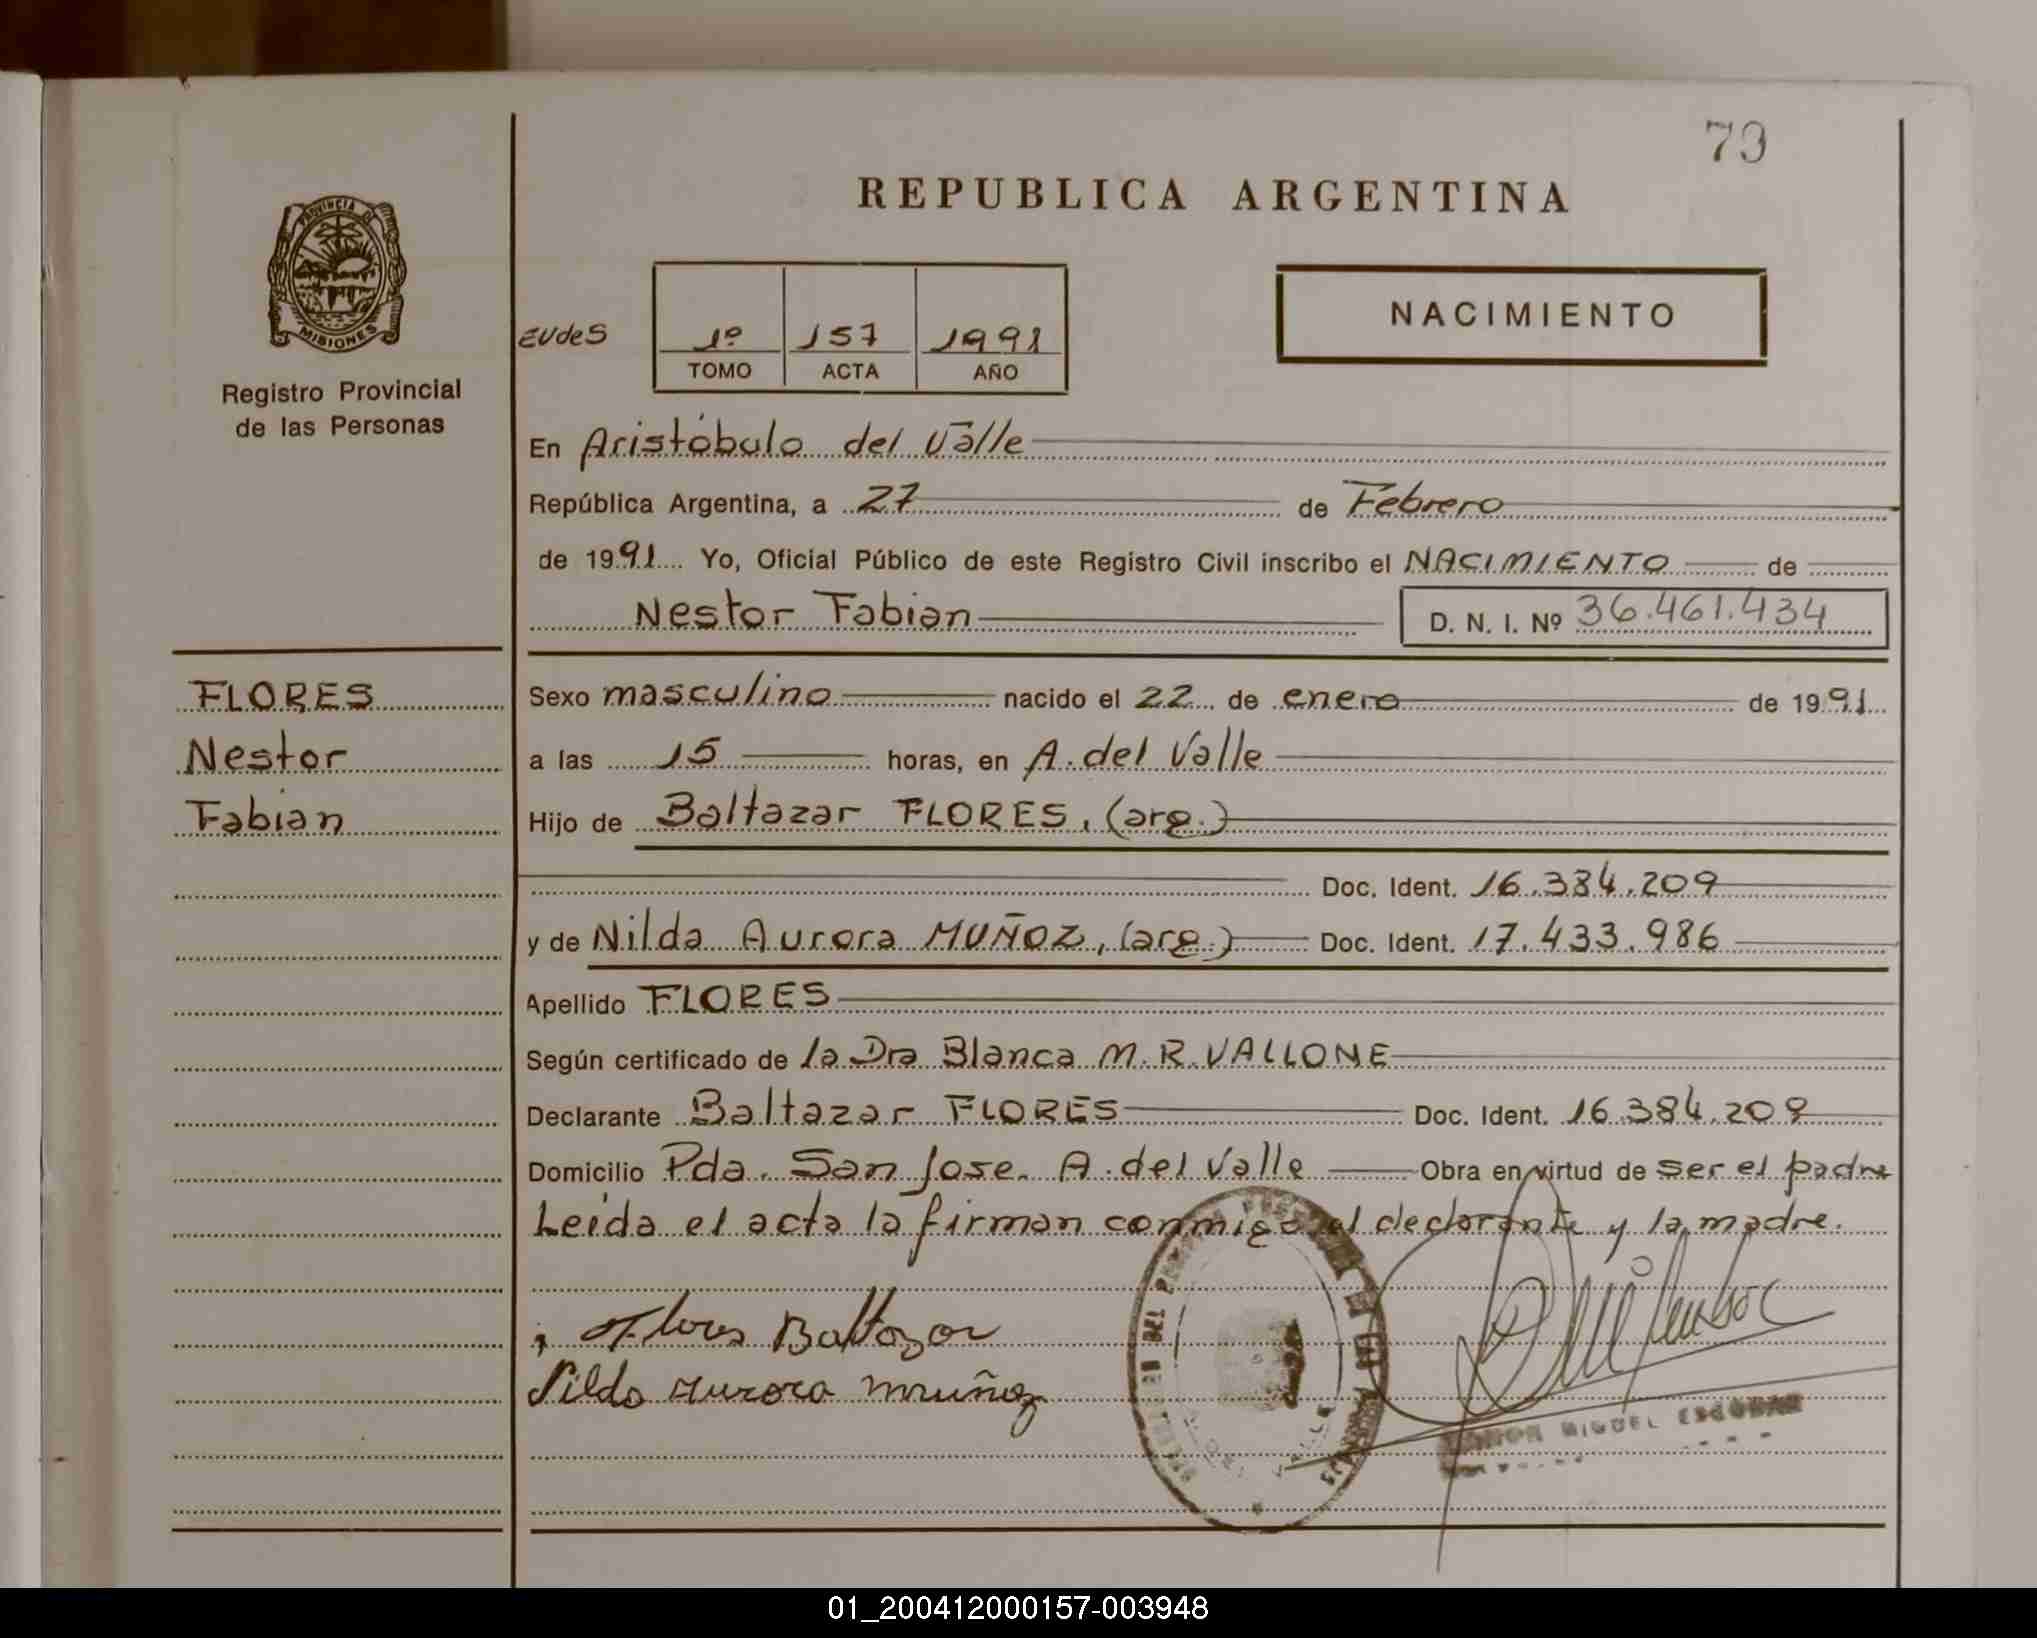 73
REPUBLICA ARGENTINA
PROVINCIA DE
MISIONES
Registro Provincial
de las Personas
EUdeS
1º 157 1991
TOMO ACTA AÑO
NACIMIENTO
En Aristóbulo del Valle
República Argentina, a 27 de Febrero
de 1991 Yo, Oficial Público de este Registro Civil inscribo el NACIMIENTO de
Nestor Fabian D. N. I. Nº 36.461.434
FLORES
Nestor
Fabian
Sexo masculino nacido el 22 de enero de 1991
a las 15 horas, en A. del Valle
Hijo de Baltazar FLORES, (arg.)
Doc. Ident. 16.384.209
y de Nilda Aurora MUÑOZ, (arg.) Doc. Ident. 17.433.986
Apellido FLORES
Según certificado de la Dra Blanca M. R. VALLONE
Declarante Baltazar FLORES Doc. Ident. 16.384.209
Domicilio Pda. San Jose. A. del Valle Obra en virtud de ser el padre
Leída el acta la firman conmigo el declarante y la madre.
Flores Baltazar
Nilda Aurora Muñoz
MIGUEL ESCOBAR
01_200412000157-003948